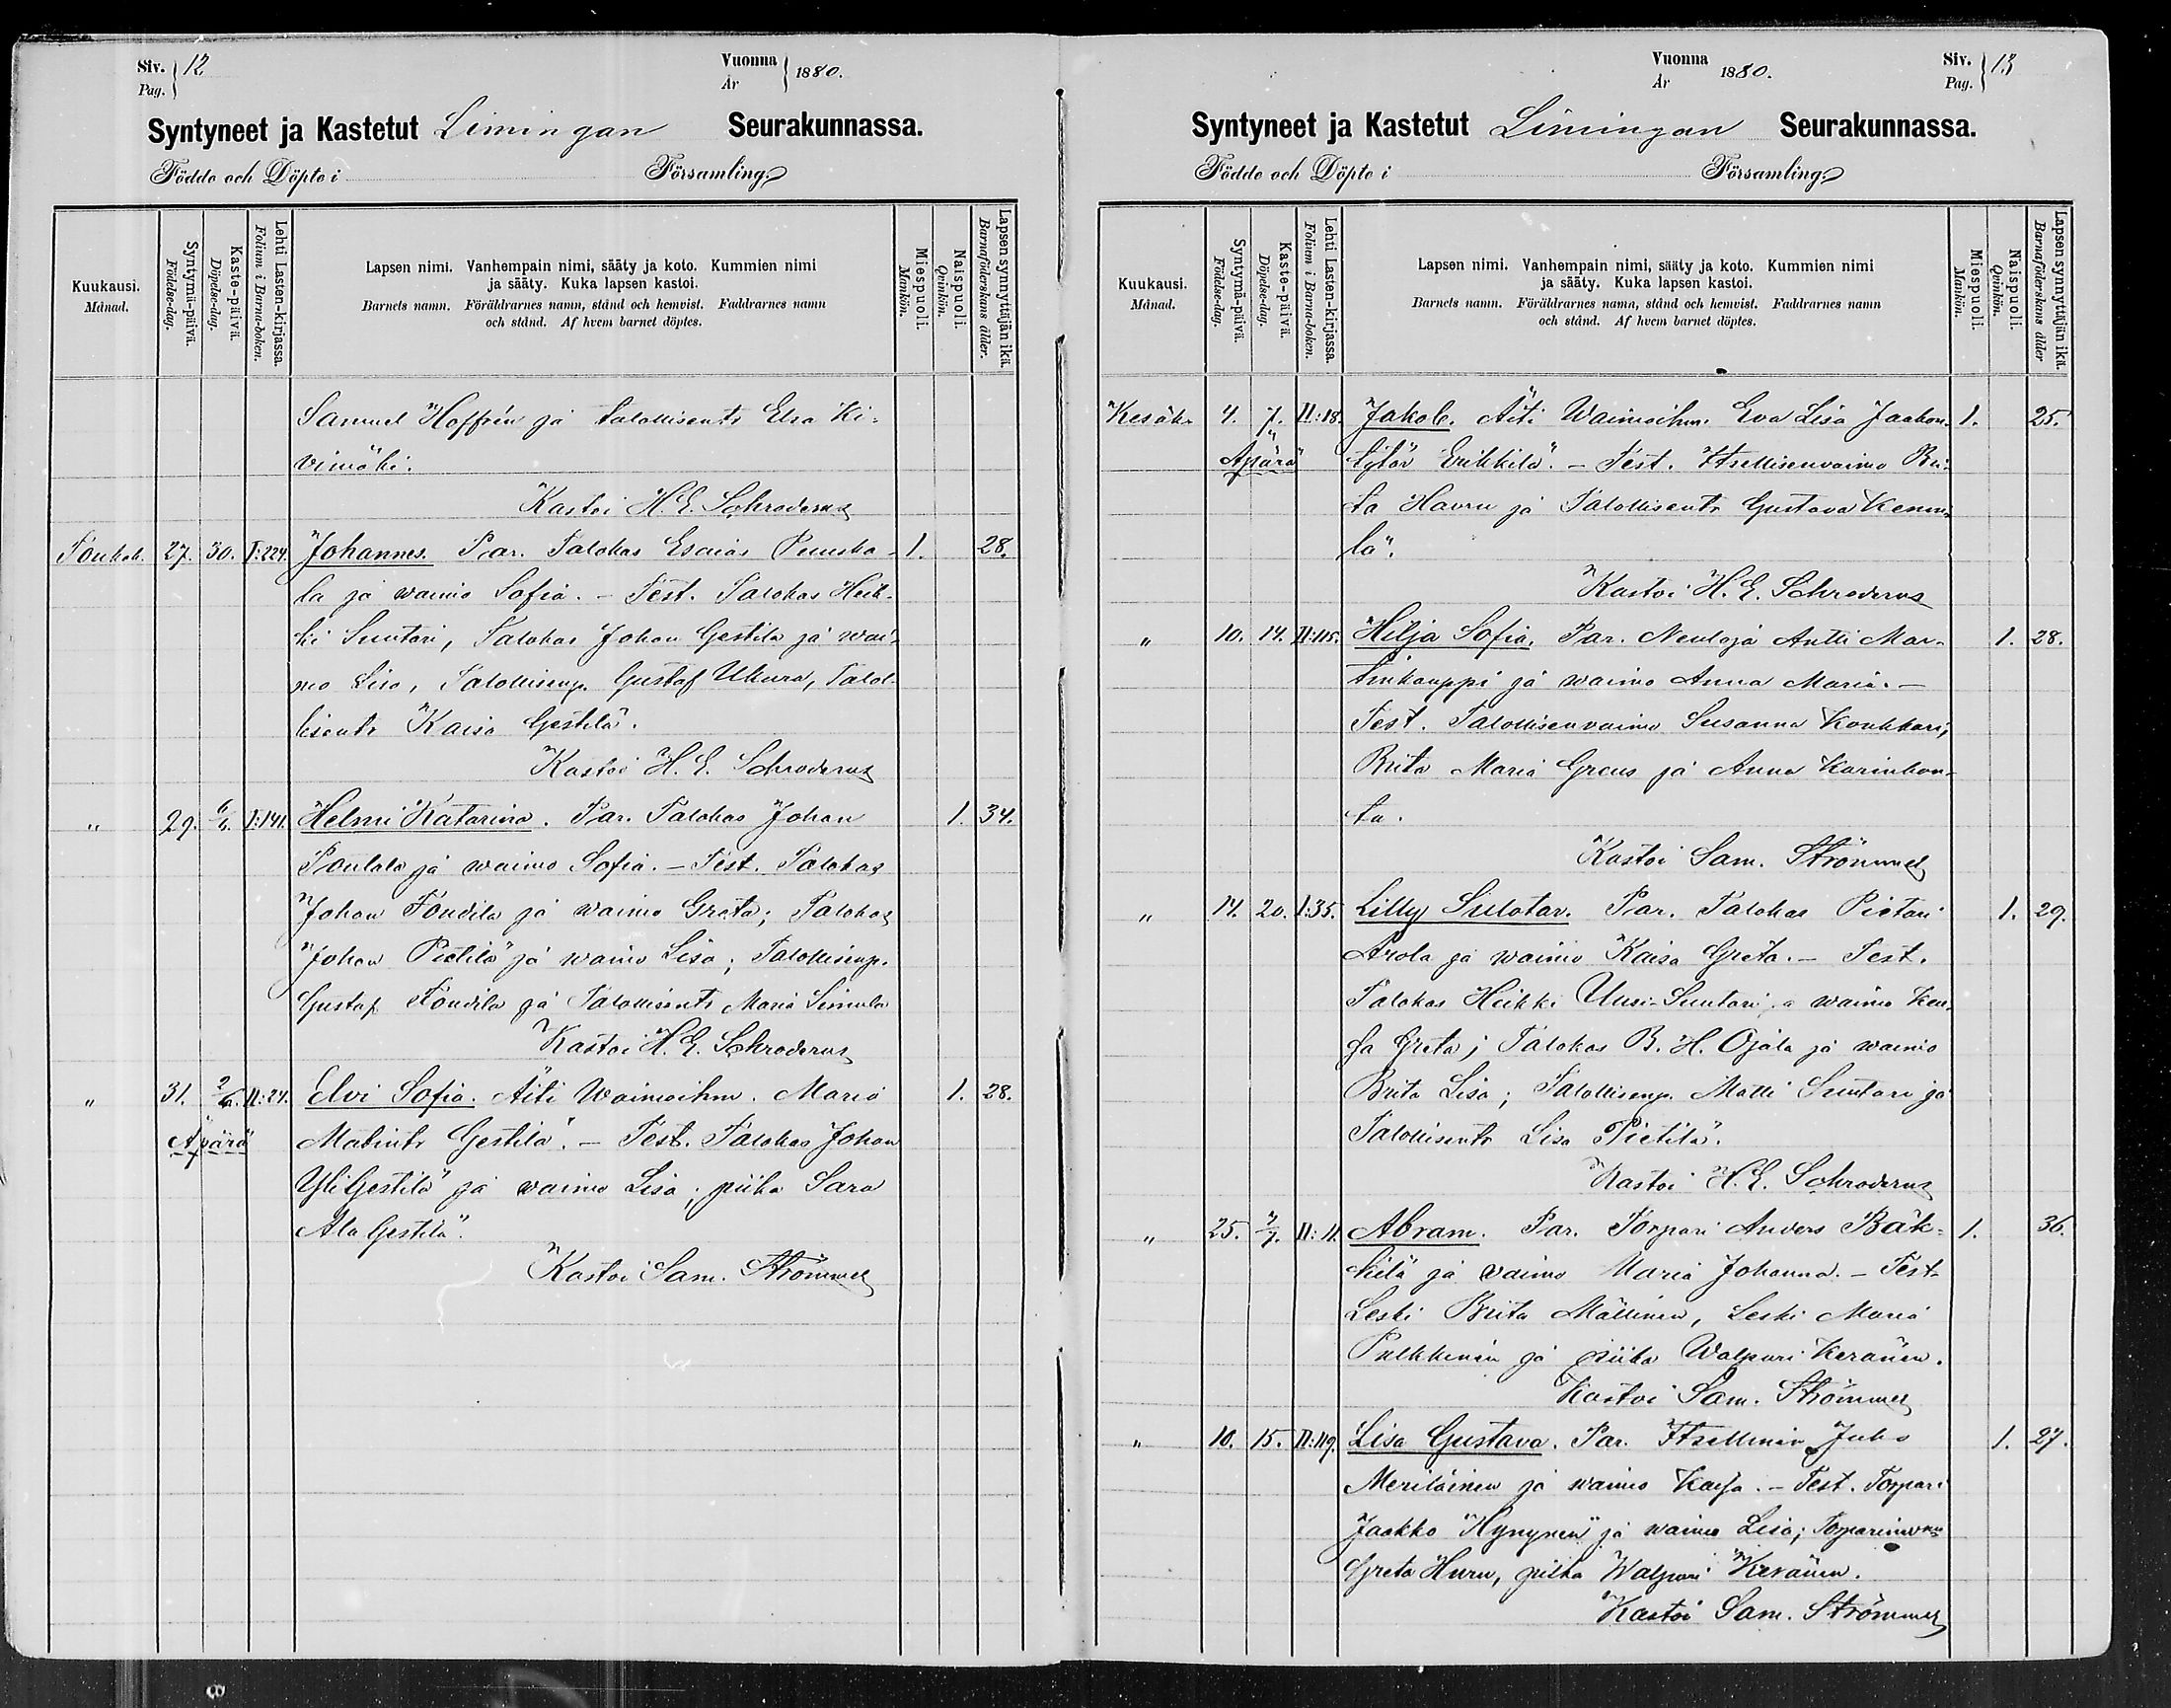 Siv. 12
Pag.
Vuonna 1880.
År
Syntyneet ja Kastetut Limingan Seurakunnassa.
Födde och Döpte i Församling.
Kuukausi.
Månad.
Syntymä-päivä.
Födelse-dag.
Kaste-päivä.
Döpelse-dag.
Lehti Lasten-kirjassa.
Folium i Barna-boken.
Lapsen nimi. Vanhempain nimi, sääty ja koto. Kummien nimi
ja sääty. Kuka lapsen kastoi.
Barnets namn. Föräldrarnes namn, stånd och hemvist. Faddrarnes namn
och stånd. Af hvem barnet döptes.
Miespuoli.
Mankön.
Naispuoli.
Qvinkön.
Lapsen synnyttäjän ikä.
Barnaföderskans ålder.
Samuel Hoffrén ja talollisentr Elsa Ki-
vimäki.
Kastoi H. E. Schroderus
Toukok. 27. 30. I:224. Johannes. Par. Talokas Esaias Puuska- 1. 28.
la ja waimo Sofia. - Test. Talokas Heik-
ki Suutari, Talokas Johan Gestilä ja wai-
mo Lisa, Talollisenp. Gustaf Ukura, Talol-
lisentr Kaisa Gestilä.
Kastoi H. E. Schroderus
" 29. 6/6. I:141. Helmi Katarina. Par. Talokas Johan 1. 34.
Toulala ja waimo Sofia. - Test. Talokas
Johan Töudila ja waimo Greta; Talokas
Johan Pietilä ja waimo Lisa; Talollisenp.
Gustaf Töudila ja Talollisentr Maria Simula
Kastoi H. E. Schroderus
" 31. 2/6. II:24. Elvi Sofia. Äiti Waimoihm. Maria 1. 28.
Äpärä Matintr Gestilä. - Test. Talokas Johan
YliGestilä ja waimo Lisa; piika Sara
AlaGestilä.
Kastoi Sam. Strömmer
Vuonna 1880.
År
Siv. 13
Pag.
Syntyneet ja Kastetut Limingan Seurakunnassa.
Födde och Döpte i Församling.
Kuukausi.
Månad.
Syntymä-päivä.
Födelse-dag.
Kaste-päivä.
Döpelse-dag.
Lehti Lasten-kirjassa.
Folium i Barna-boken.
Lapsen nimi. Vanhempain nimi, sääty ja koto. Kummien nimi
ja sääty. Kuka lapsen kastoi.
Barnets namn. Föräldrarnes namn, stånd och hemvist. Faddrarnes namn
och stånd. Af hvem barnet döptes.
Miespuoli.
Mankön.
Naispuoli.
Qvinkön.
Lapsen synnyttäjän ikä.
Barnaföderskans ålder
Kesäk. 4. 7. II:18. Jakob. Äiti Waimoihm. Eva Lisa Jaakon- 1. 25.
Äpärä tytär Erikkilä. - Test. Itsellisenvaimo Brii-
ta Hauru ja Talollisentr Gustava Kemi-
lä.
Kastoi H. E. Schroderus
" 10. 14. II:115. Hilja Sofia. Par. Neuloja Antti Mar- 1. 28.
tinkauppi ja waimo Anna Maria. -
Test. Talollisenvaimo Susanna Koukkari,
Brita Maria Greus ja Anna Karinkan-
ta.
Kastoi Sam. Strömmer
" 14. 20. I:35. Lilly Sulotar. Par. Talokas Pietari 1. 29.
Arola ja waimo Kaisa Greta. - Test.
Talokas Heikki Uusi-Suutari a waimo Kai-
sa Greta; Talokas B. H. Ojala ja waimo
Brita Lisa; Talollisenp. Matti Suutari ja
Talollisentr Lisa Pietilä.
Kastoi H. E. Schroderus
" 25. 2/7. II:11. Abram. Par. Torpari Anders Bäk- 1. 36.
kilä ja waimo Maria Johanna. - Test.
Leski Brita Mällinen, Leski Maria
Pulkkinen ja piika Walpuri Keränen.
Kastoi Sam. Strömmer
" 10. 15. II:119. Lisa Gustava. Par. Itsellinen Juho 1. 27.
Meriläinen ja waimo Kaisa. - Test. Torpari
Jaakko Hynynen ja waimo Lisa; Torparinwmo
Greta Huru, piika Walpuri Keränen.
Kastoi Sam. Strömmer